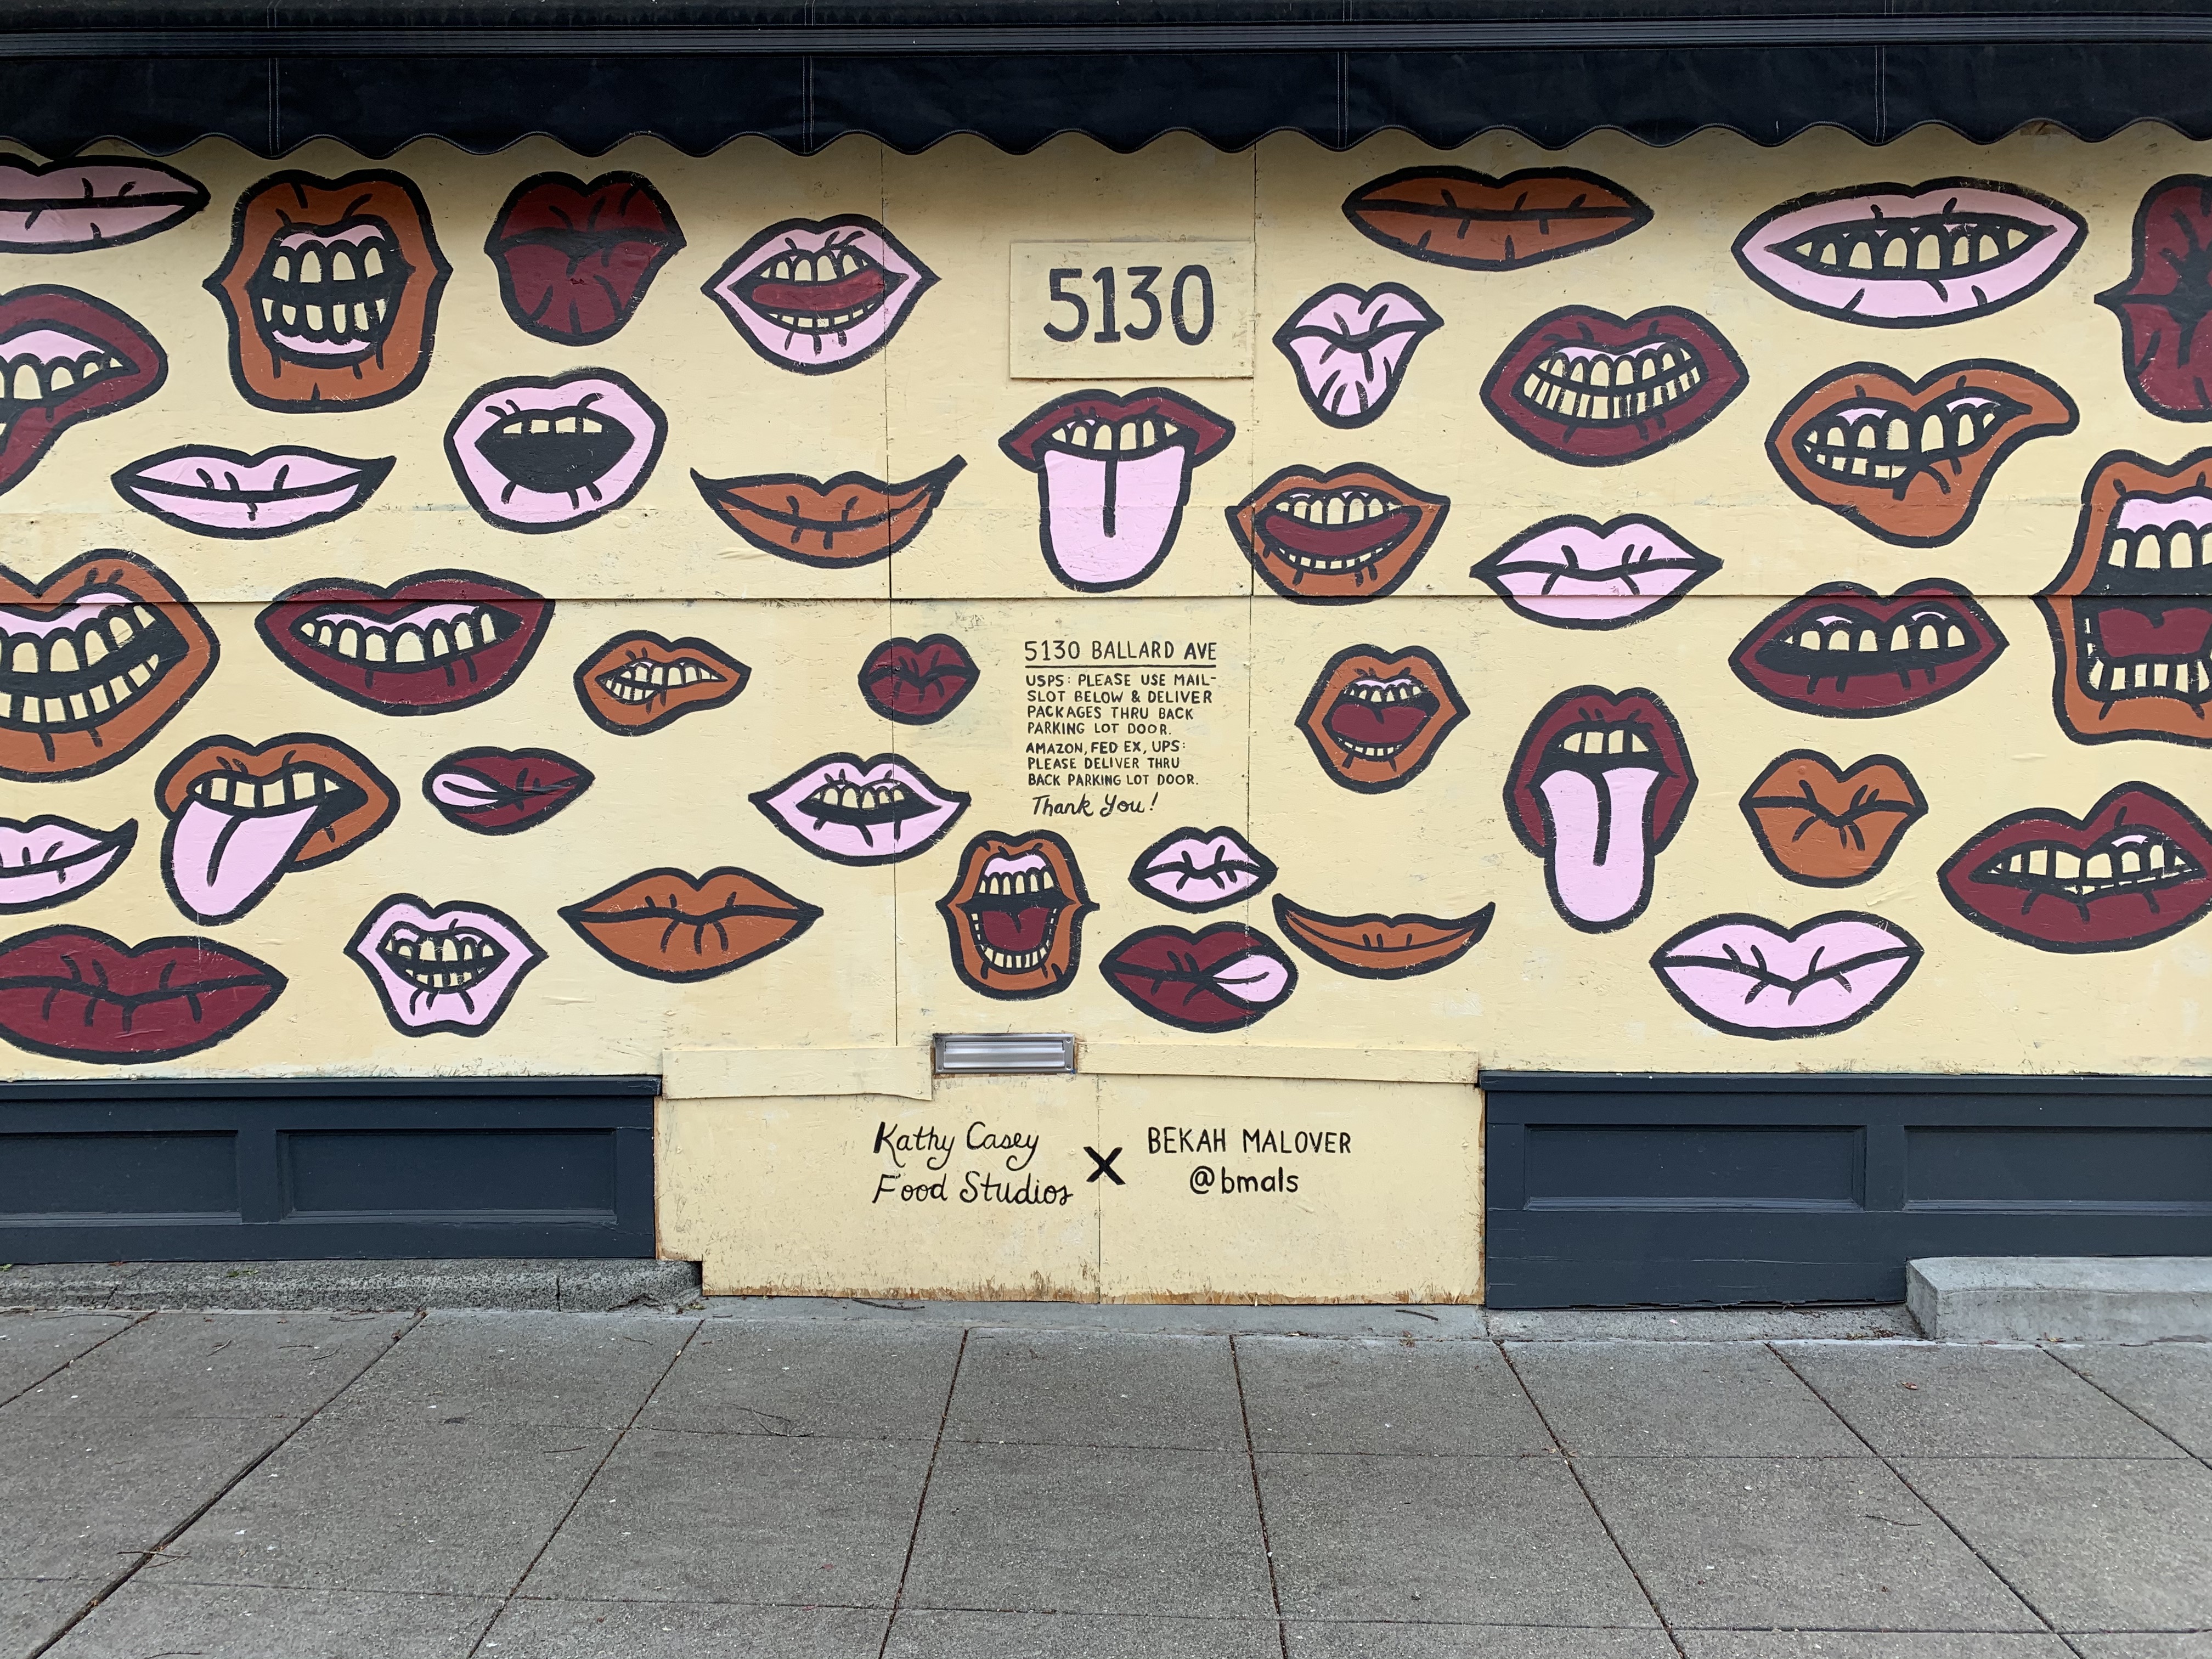 5130
5130 BALLARD AVE
USPS: PLEASE USE MAIL-
SLOT BELOW & DELIVER
PACKAGES THRU BACK
PARKING LOT DOOR.
AMAZON, FED EX, UPS:
PLEASE DELIVER THRU
BACK PARKING LOT DOOR.
Thank You!
Kathy Casey
Food Studios
X
BEKAH MALOVER
@bmals